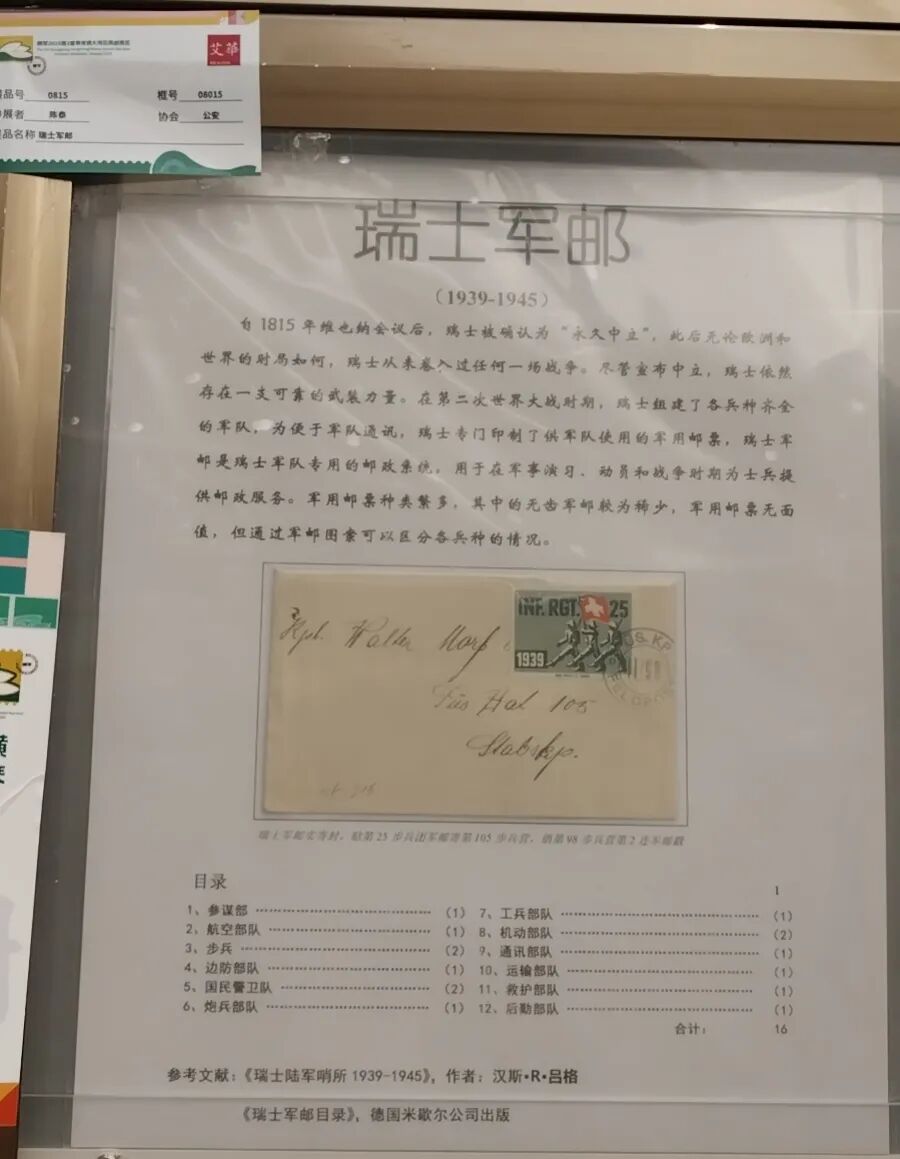 艾華
展品号 0815 框号 08015
参展者 陈泰 协会 公安
展品名称 瑞士军邮
瑞士军邮
（1939-1945）
自1815年维也纳会议后，瑞士被确认为“永久中立”，此后无论欧洲和
世界的时局如何，瑞士从未卷入过任何一场战争。尽管宣布中立，瑞士依然
存在一支可靠的武装力量。在第二次世界大战时期，瑞士组建了各兵种齐全
的军队，为便于军队通讯，瑞士专门印制了供军队使用的军用邮票，瑞士军
邮是瑞士军队专用的邮政系统，用于在军事演习、动员和战争时期为士兵提
供邮政服务。军用邮票种类繁多，其中的无齿军邮较为稀少，军用邮票无面
值，但通过军邮图案可以区分各兵种的情况。
INF. RGT. 25
1939
Kpl. Walter Morf
Füs Bat 105
Stabskp.
瑞士军邮实寄封，贴第25步兵团军邮寄第105步兵营，销第98步兵营第2连军邮戳
目录
1
1、参谋部 （1） 7、工兵部队 （1）
2、航空部队 （1） 8、机动部队 （2）
3、步兵 （2） 9、通讯部队 （1）
4、边防部队 （1） 10、运输部队 （1）
5、国民警卫队 （2） 11、救护部队 （1）
6、炮兵部队 （1） 12、后勤部队 （1）
合计： 16
参考文献：《瑞士陆军哨所 1939-1945》，作者：汉斯•R•吕格
《瑞士军邮目录》，德国米歇尔公司出版